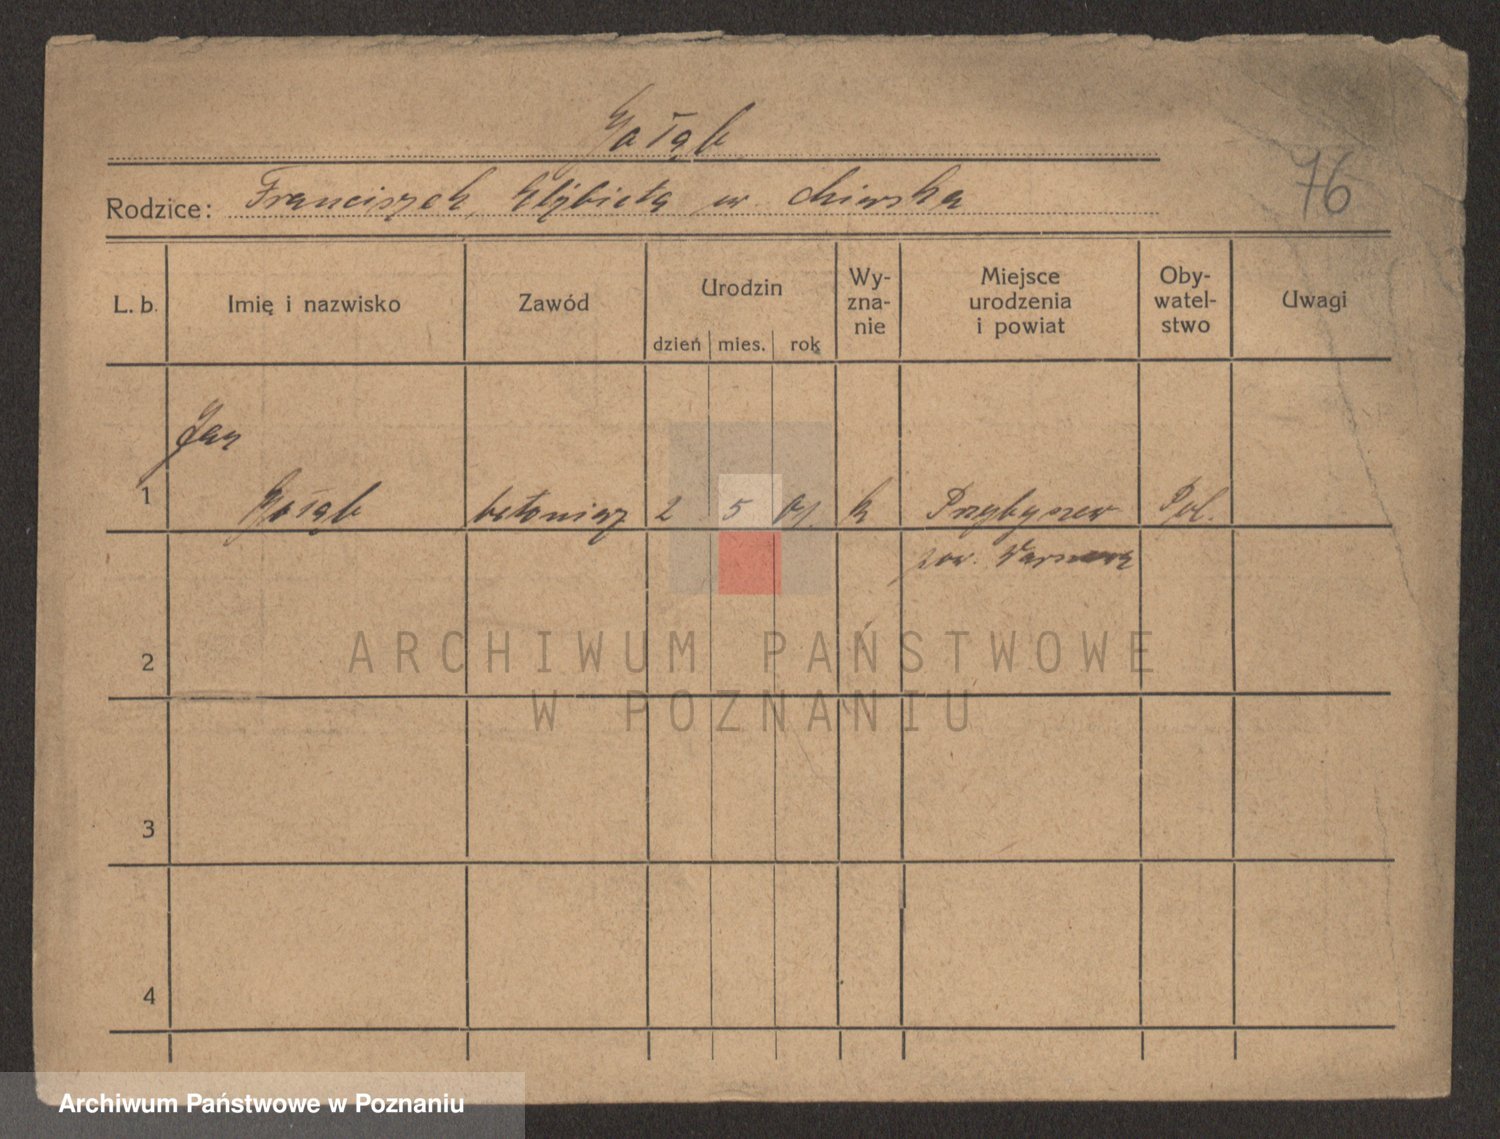 Gołąb
76
Rodzice: Franciszek, Elżbieta
L. b. Imię i nazwisko Zawód Urodzin dzień mies. rok Wy-zna-nie Miejsce urodzenia i powiat Oby-watel-stwo Uwagi
Jan
1 Gołąb betoniarz 2 5 k Przybyszew Pol.
pow.
ARCHIWUM PAŃSTWOWE
2
W POZNANIU
3
4
Archiwum Państwowe w Poznaniu